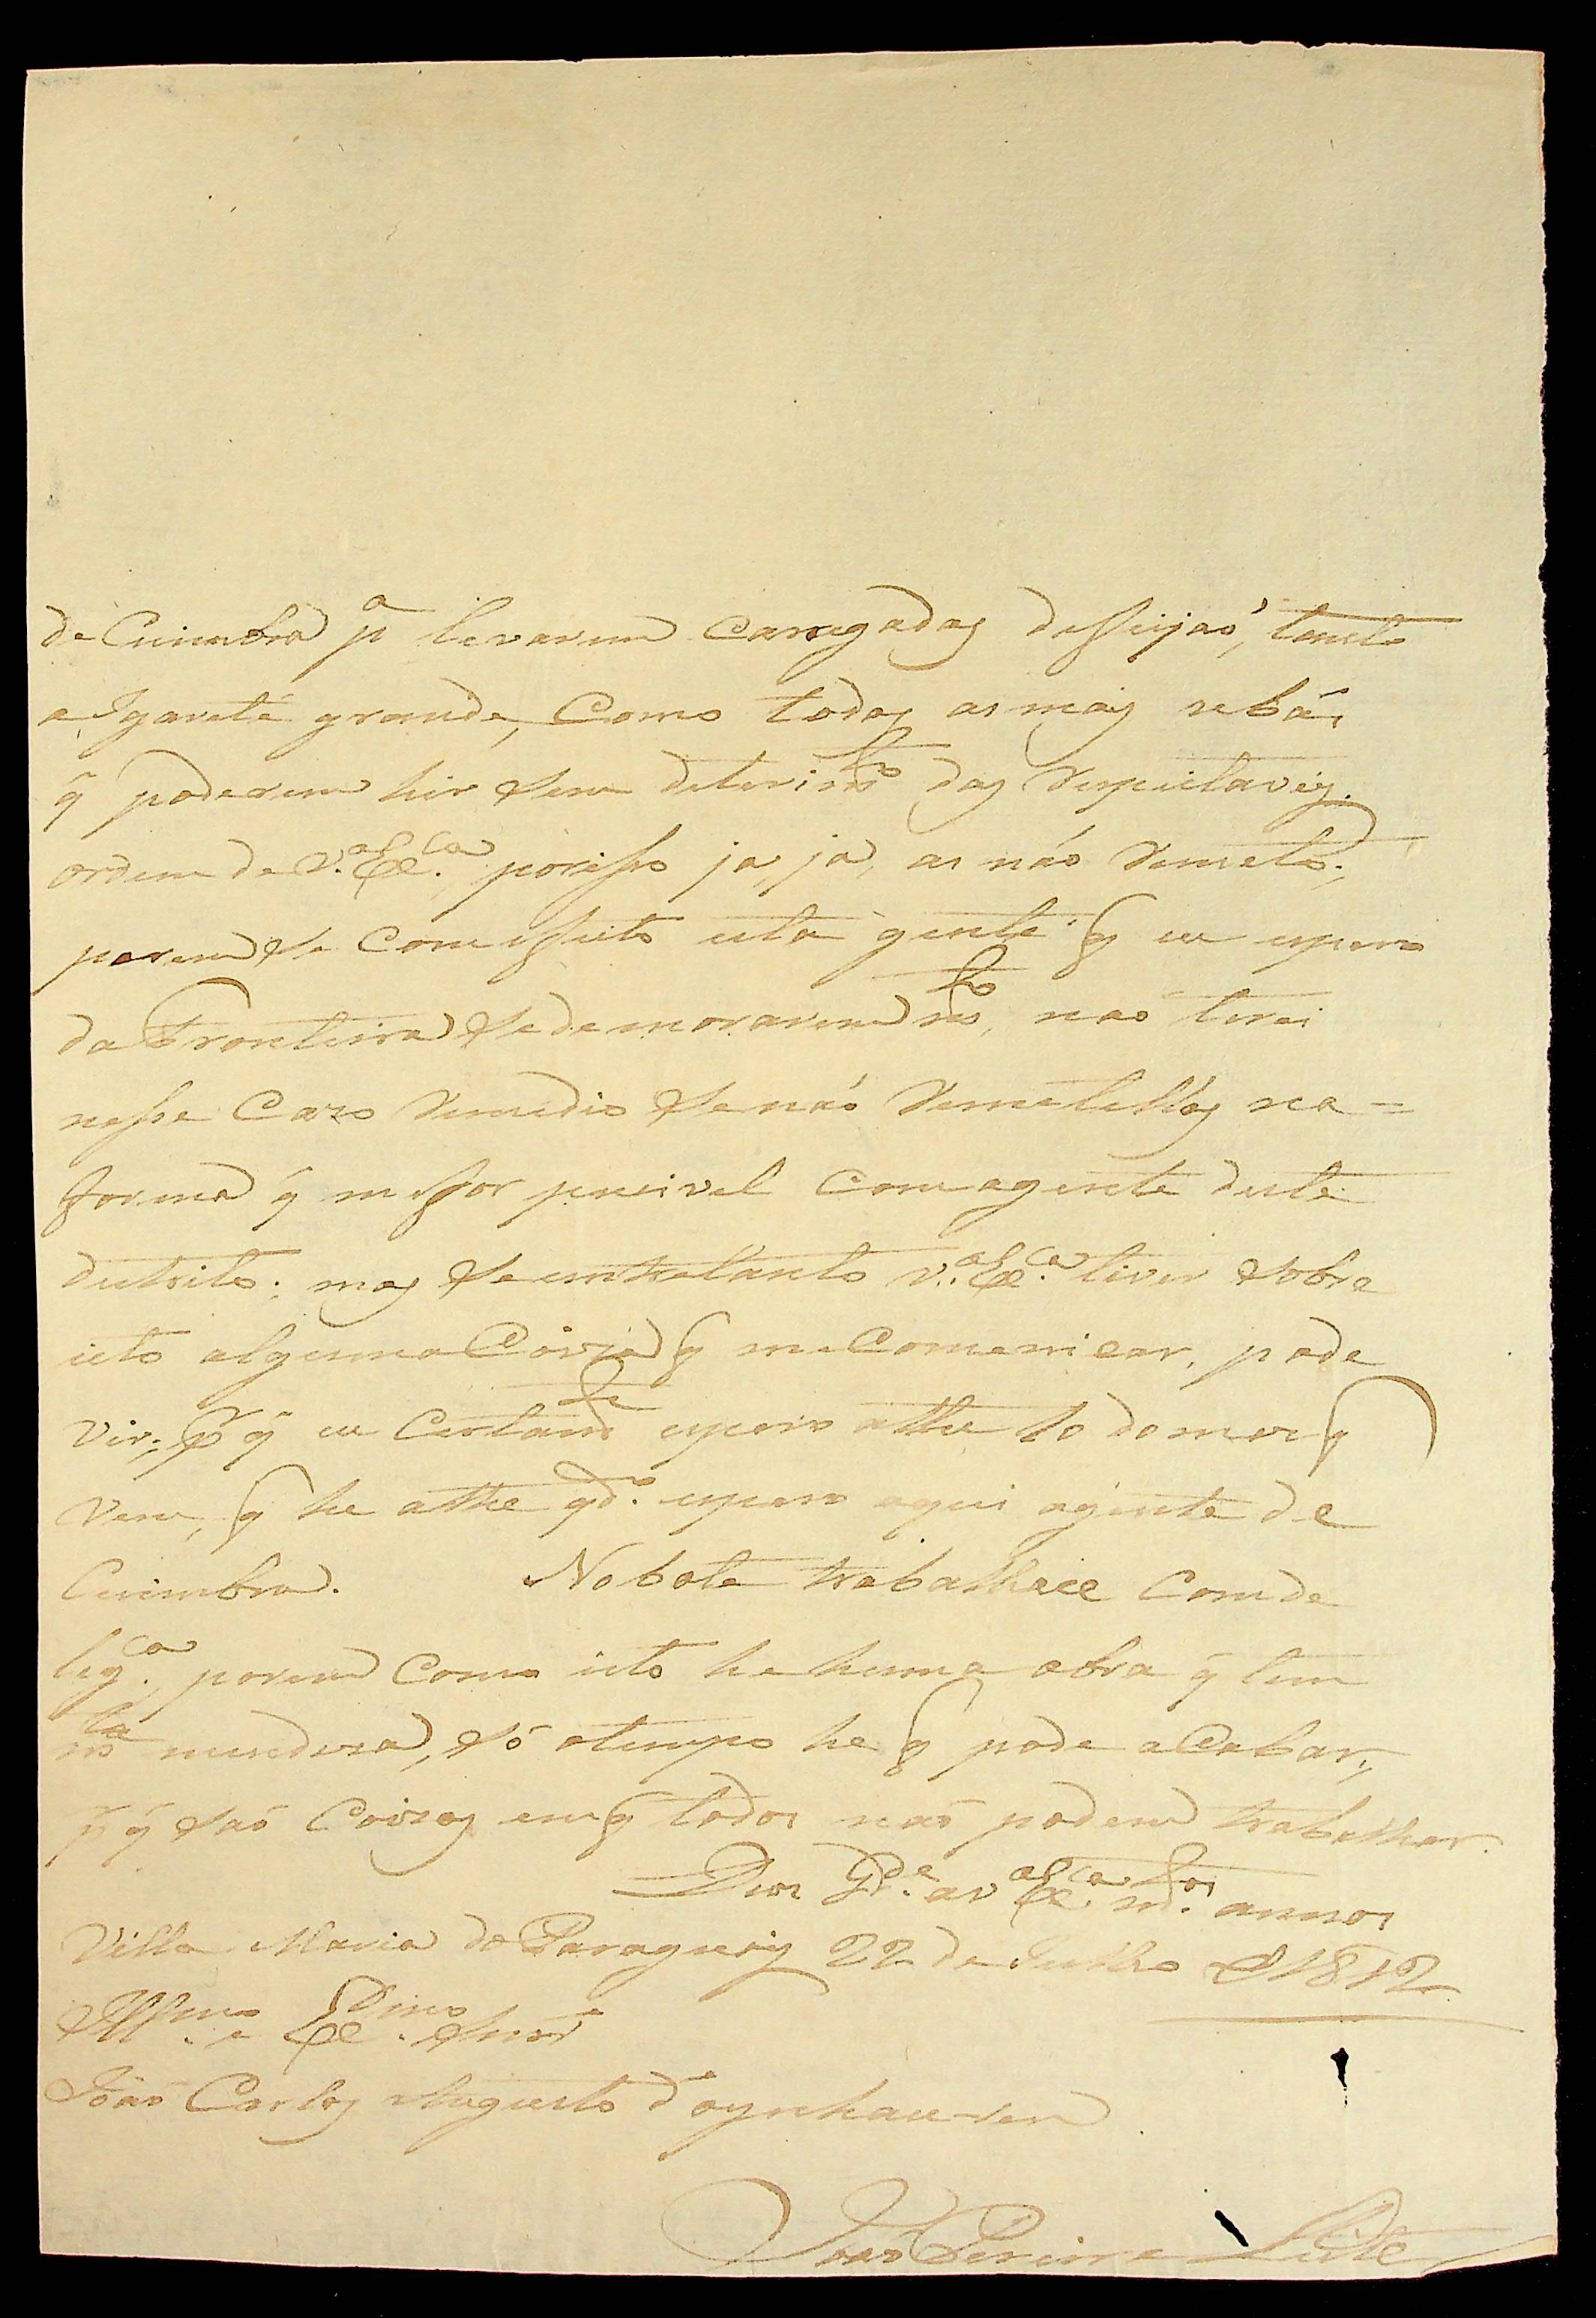 de Cuimbra p.ª levarem carregadas de feijaó, tanto
a Igareté grande, Como todas as mais
q̃ poderem hir sem deterim.to das Respeitaveis
ordem de V.ª Ex.ca, porisso ja, ja, as não Remeto;
porem se Com effeito esta gente q̃ eu espero
da Fronteira se demorarem m.to, naó terei
nesse Cazo Remedio Senaó Remetellas na=
forma q̃ me for pucivel Com agente deste
destrito; mas se entretanto V.ª Ex.ca tiver sobre
isto alguma Coiza q̃ me Comunicar, pode
vir; p.r q̃ eu Certam.te espero athe do mes q̃
vem, q̃ he athe q.do espero aqui agente de
Cuimbra. No bote trabalhace Com de
lig.ca, porem Como isto he huma obra q̃ tem
m.ta miudeza, só otempo he q̃ pode aCabar;
p.r q̃ saó Coizas em q̃ todos naó podem trabalhar.
Deos G.de a V.ª Ex.ca m.tos annos
Villa Maria do Paraguay 22 de Julho d 1812
Ill.mo e Ex.mo Snór
Joaó Carlos Augusto d'oynhausen
Joaó Pereira Leite